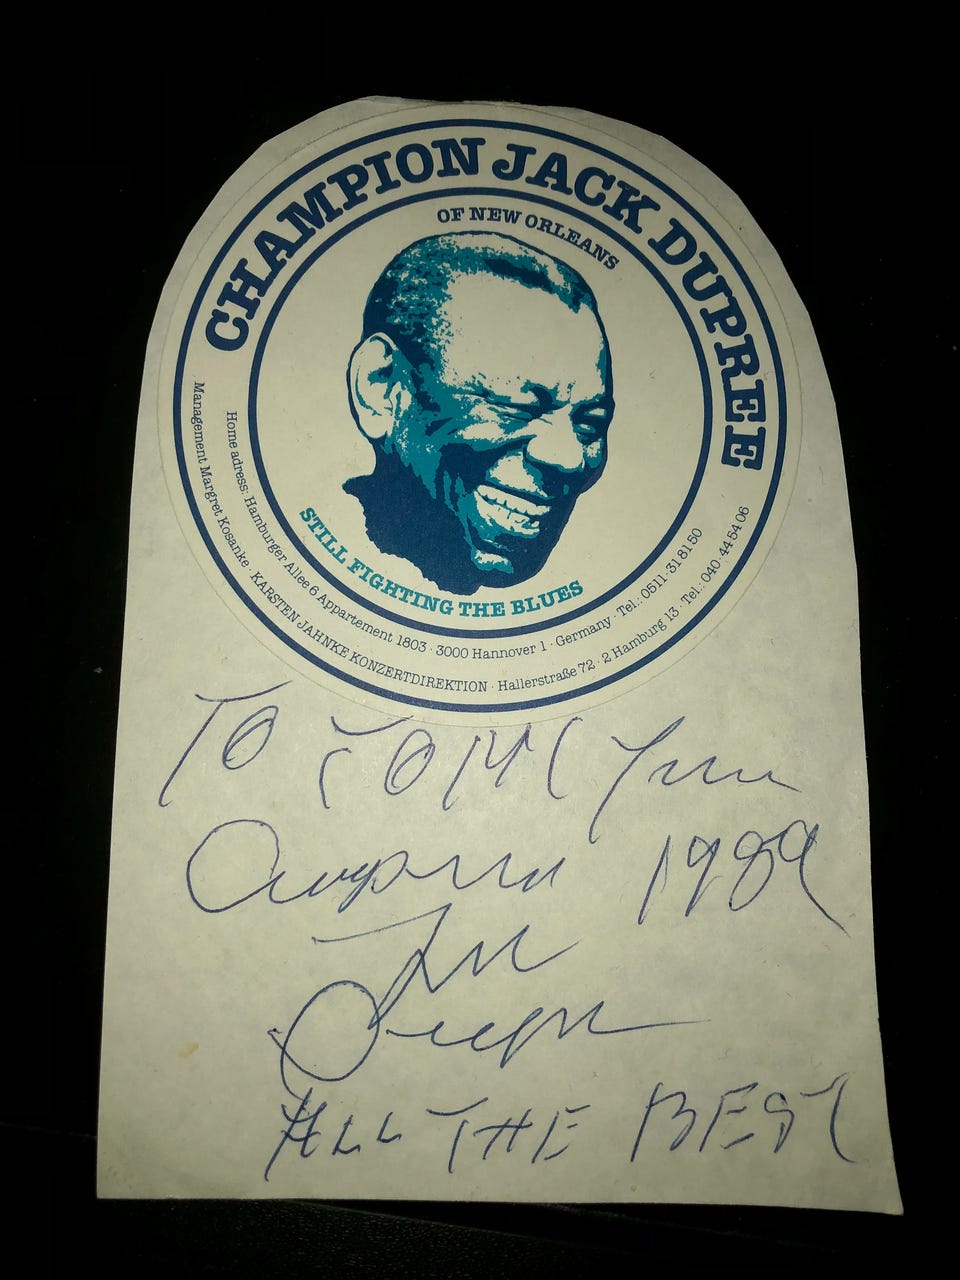 CHAMPION JACK DUPREE
OF NEW ORLEANS
STILL FIGHTING THE BLUES
Home adress: Hamburger Allee 6 Appartement 1803 · 3000 Hannover 1 · Germany · Tel.: 0511·31 81 50
Management Margret Kosanke · KARSTEN JAHNKE KONZERTDIREKTION · Hallerstraße 72 · 2 Hamburg 13 · Tel.: 040·44 54 06
TO
1989
ALL THE BEST